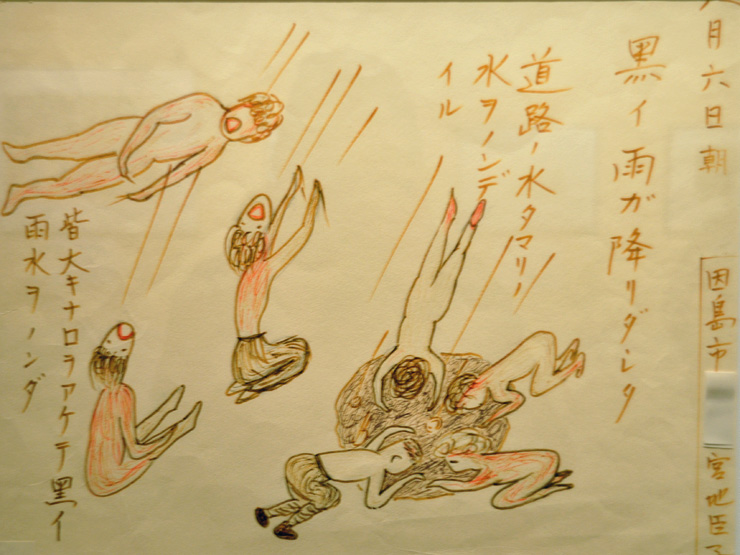 八月六日朝
因島市 宮地臣子
黒イ雨ガ降リダシタ
道路ノ水タマリノ
水ヲノンデ
イル
皆大キナ口ヲアケテ黒イ
雨水ヲノンダ